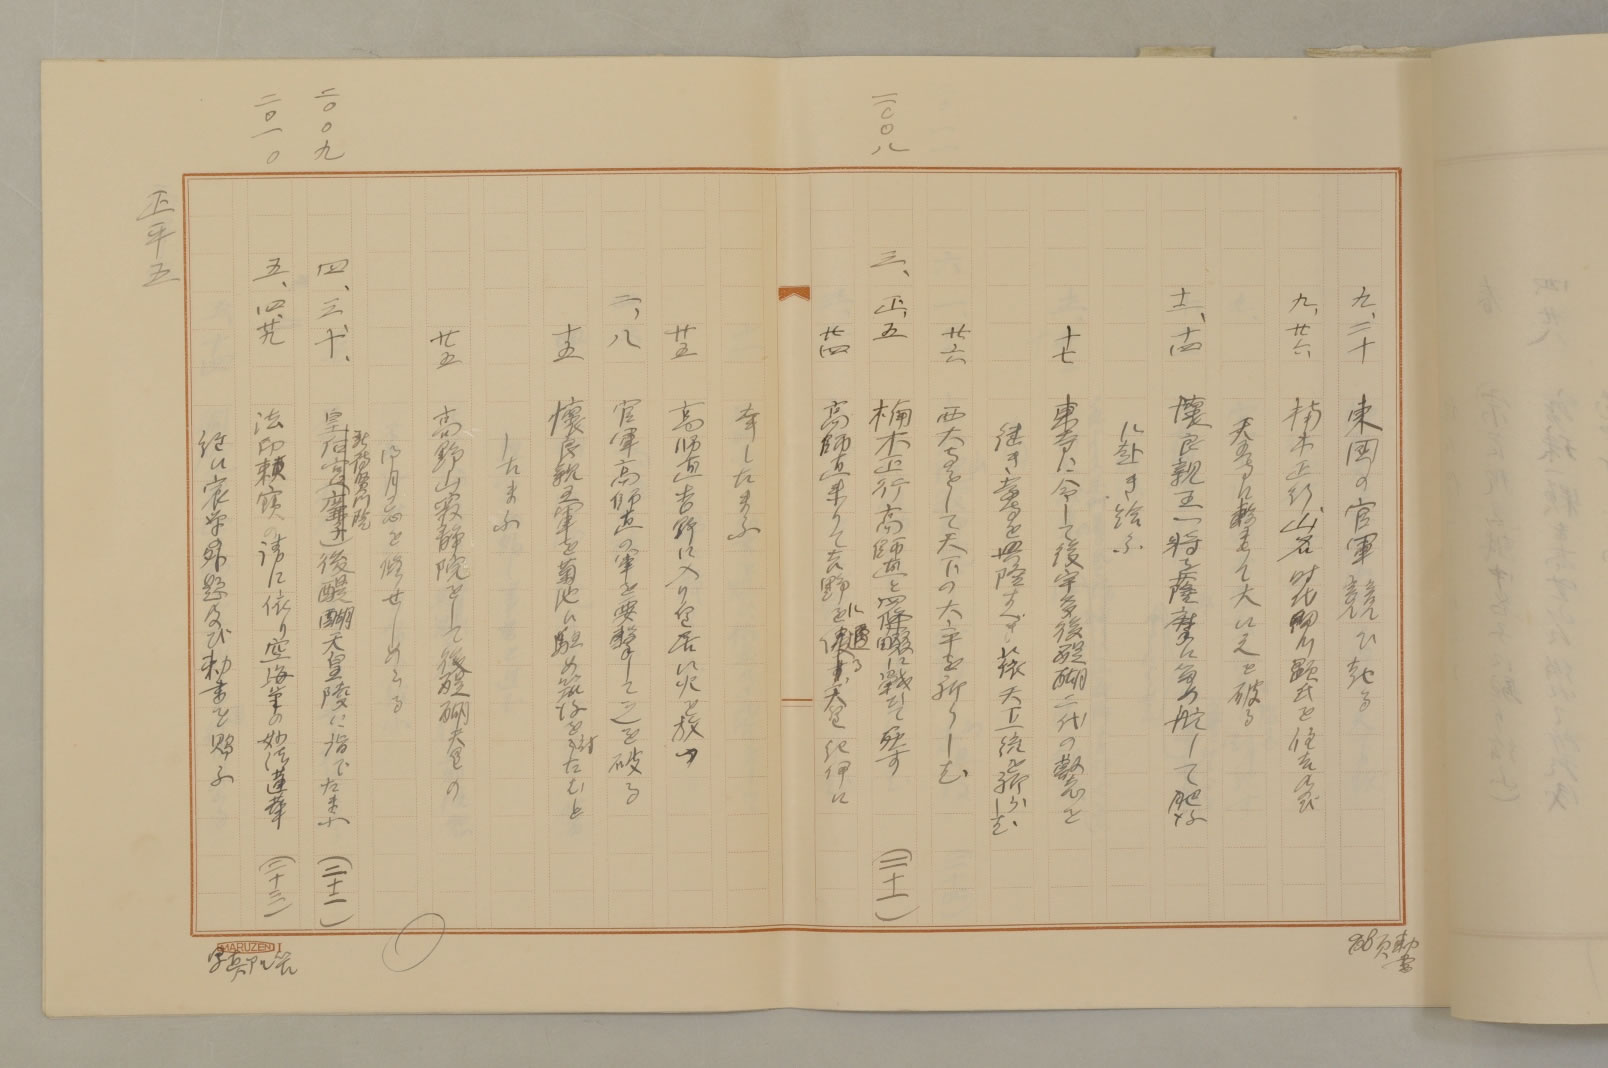 九、二十 東国の官軍競ひ起る
九、廿六 楠木正行山名時氏細川顕氏を住吉及び
天王寺に撃ちて大いに之を破る
十一、十四 懐良親王将に薩摩に航して肥後
に赴き給ふ
十七 東寺に令して後宇多後醍醐二代の叡念を
継き
廿六 西大寺をして天下の太平を祈らしむ
二〇〇八
三、正、五 楠木正行高師直と四條畷に戦ひて死す (二十一)
廿四 高師直来りて吉野に逼る天皇紀伊に
幸したまふ
廿五 高師直吉野に入り皇居に火を放つ
二、八 官軍高師直の軍を要撃して之を破る
十五 懐良親王軍を菊池に駐め筑後を討たむと
したまふ
廿五 高野山寂静院をして後醍醐天皇の
御月忌を修せしめらる
二〇〇九
四、三、十、 皇后宮 新待賢門院 後醍醐天皇陵に詣でたまふ (二十一)
二〇一〇
五、四、廿九 法印頼宝の請に依り空海筆の妙法蓮華
経に宸筆の外題及び勅書を賜ふ (二十三)
正平五
MARUZEN I
268頁勅書